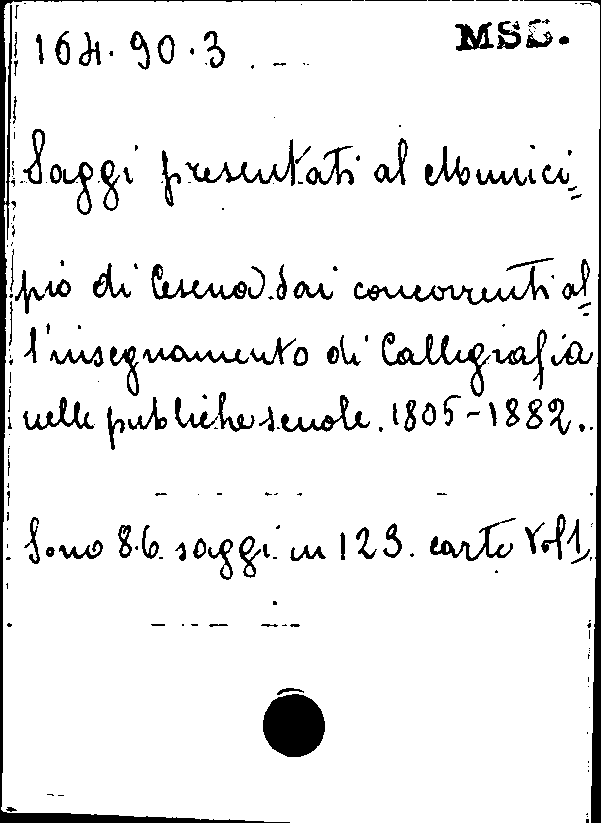 164.90.3 MSS.
Saggi presentati al Munici=
pio di Cesena dai concorrenti al=
l'insegnamento di Calligrafia
nelle publiche scuole. 1805-1882.
Sono 86 saggi in 123. carte Vol 1,